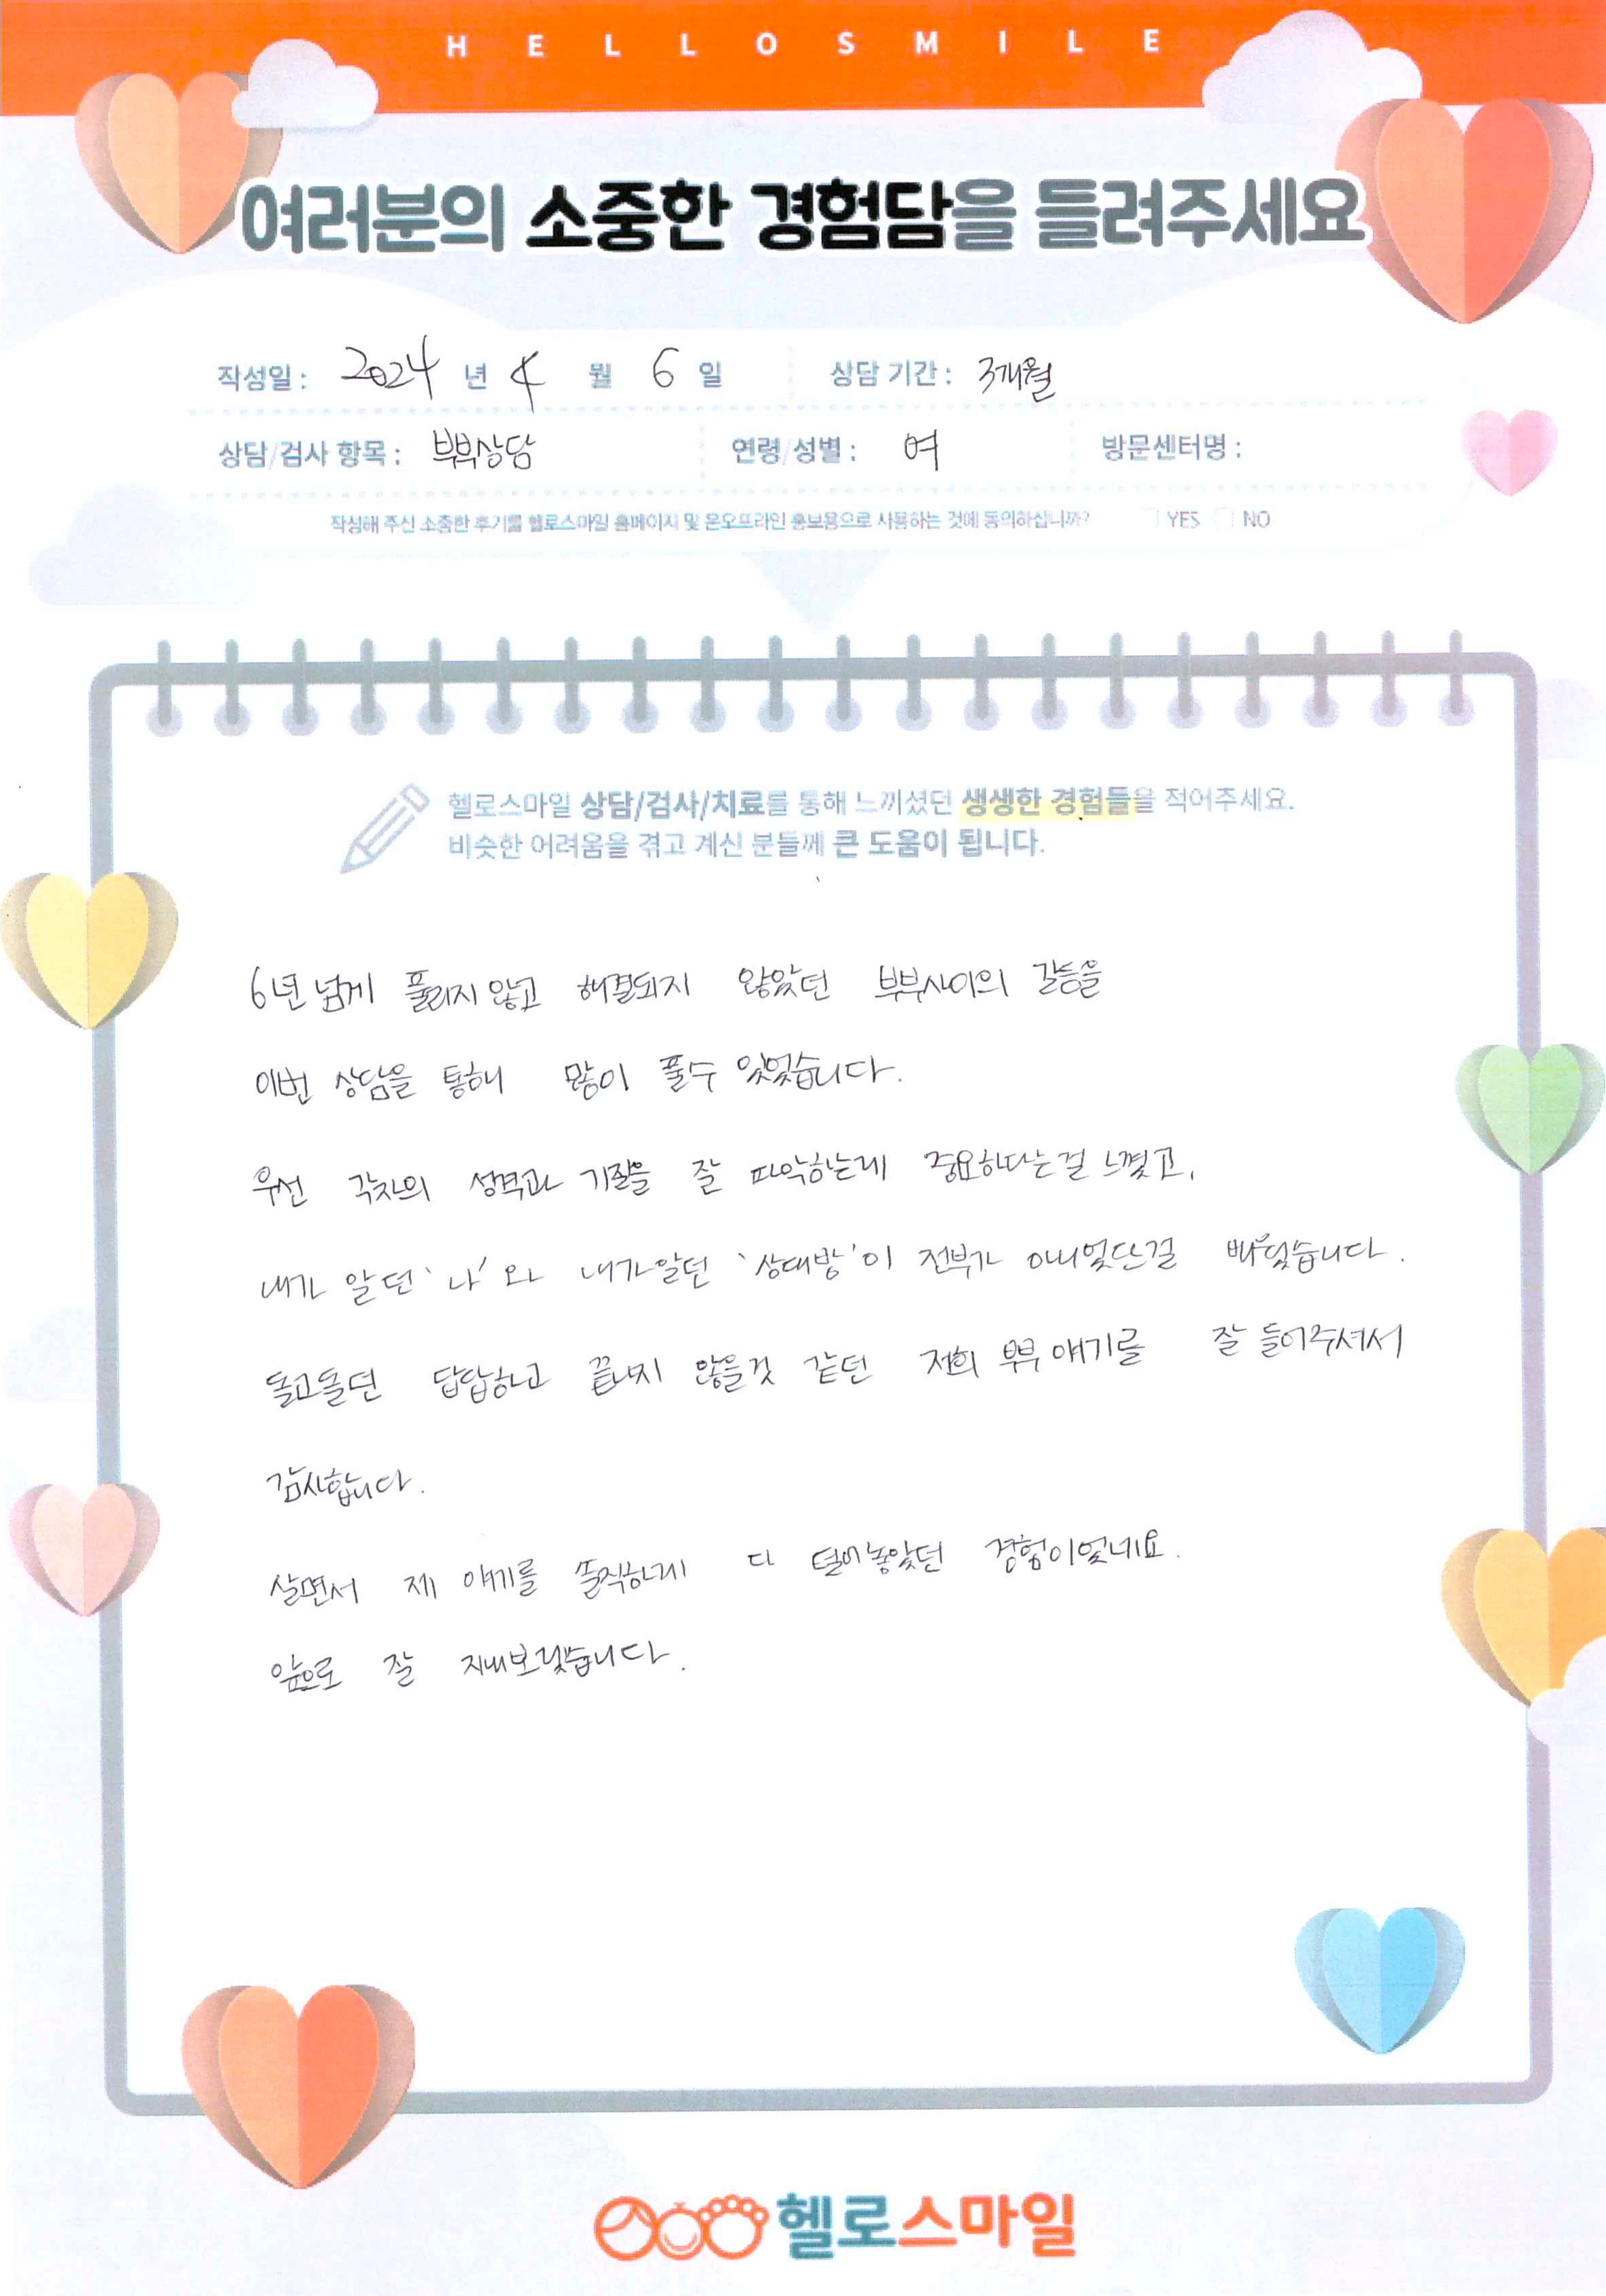 HELLOSMILE
여러분의 소중한 경험담을 들려주세요
작성일 : 2024 년 4 월 6 일 상담 기간 : 3개월
상담/검사 항목 : 부부상담 연령/성별 : 여 방문센터명 :
작성해 주신 소중한 후기를 헬로스마일 홈페이지 및 온오프라인 홍보용으로 사용하는 것에 동의하십니까? YES NO
헬로스마일 상담/검사/치료를 통해 느끼셨던 생생한 경험들을 적어주세요.
비슷한 어려움을 겪고 계신 분들께 큰 도움이 됩니다.
6년 넘게 풀리지 않고 해결되지 않았던 부부사이의 갈등을
이번 상담을 통해 많이 풀수 있었습니다.
우선 각자의 성격과 기질을 잘 파악하는게 중요하다는걸 느꼈고,
내가 알던 '나' 와 내가알던 '상대방'이 전부가 아니었단걸 배웠습니다.
돌고돌던 답답하고 끝나지 않을것 같던 저희 부부 얘기를 잘 들어주셔서
감사합니다.
살면서 제 얘기를 솔직하게 다 털어놓았던 경험이었네요.
앞으로 잘 지내보겠습니다.
헬로스마일